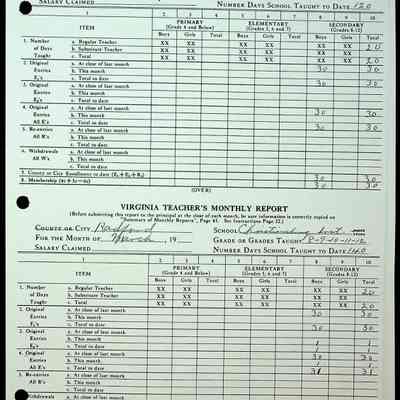 SALARY CLAIMED NUMBER DAYS SCHOOL TAUGHT TO DATE 120
ITEM PRIMARY (Grade 4 and Below) ELEMENTARY (Grades 5, 6 and 7) SECONDARY (Grades 8-12)
Boys Girls Total Boys Girls Total Boys Girls Total
1. Number a. Regular Teacher XX XX XX XX XX XX 20
of Days b. Substitute Teacher XX XX XX XX XX XX
Taught c. Total XX XX XX XX XX XX 20
2. Original a. At close of last month 30 30
Entries b. This month
E₁'s c. Total to date 30 30
3. Original a. At close of last month
Entries b. This month
c. Total to date
4. Original a. At close of last month 30 30
Entries b. This month
All E's c. Total to date 30 30
5. Re-entries a. At close of last month
b. This month
All R's c. Total to date
6. Withdrawals a. At close of last month
b. This month
All W's c. Total to date
7. County or City Enrollment to date 30 30
8. Membership 30 30
(OVER)
VIRGINIA TEACHER'S MONTHLY REPORT
(Before submitting this report to the principal at the close of each month, be sure information is correctly copied on
"Summary of Monthly Reports", Page 41. See Instructions Page 32.)
COUNTY OR CITY Radford SCHOOL
FOR THE MONTH OF March, 19 GRADE OR GRADES TAUGHT 8-9-10-11-12
SALARY CLAIMED NUMBER DAYS SCHOOL TAUGHT TO DATE 140
1 2 3 4 5 6 7 8 9 10
ITEM PRIMARY (Grade 4 and Below) ELEMENTARY (Grades 5, 6 and 7) SECONDARY (Grades 8-12)
Boys Girls Total Boys Girls Total Boys Girls Total
1. Number a. Regular Teacher XX XX XX XX XX XX 20
of Days b. Substitute Teacher XX XX XX XX XX XX
Taught c. Total XX XX XX XX XX XX 20
2. Original a. At close of last month 30 30
Entries b. This month
E₁'s c. Total to date 30 30
3. Original a. At close of last month
Entries b. This month 1 1
c. Total to date 1 1
4. Original a. At close of last month 30 30
Entries b. This month 1 1
All E's c. Total to date 31 31
5. Re-entries a. At close of last month
b. This month
All R's c. Total to date
a. At close of last month